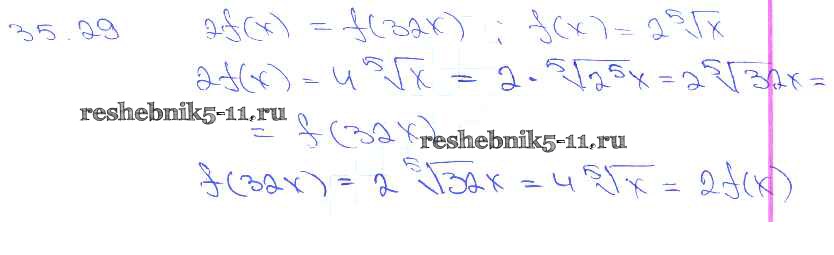 35.29 2f(x) = f(32x) ; f(x) = 2⁵√x
2f(x) = 4 ⁵√x = 2 · ⁵√2⁵x = 2 ⁵√32x =
reshebnik5-11.ru
= f(32x)
reshebnik5-11.ru
f(32x) = 2 ⁵√32x = 4 ⁵√x = 2f(x)